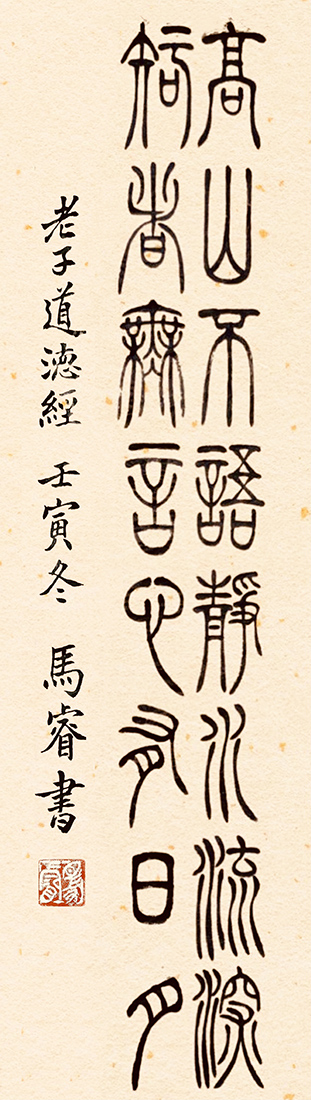 高山不語靜水流深
知者無言心有日月
老子道德經 壬寅冬 馬睿書
馬睿